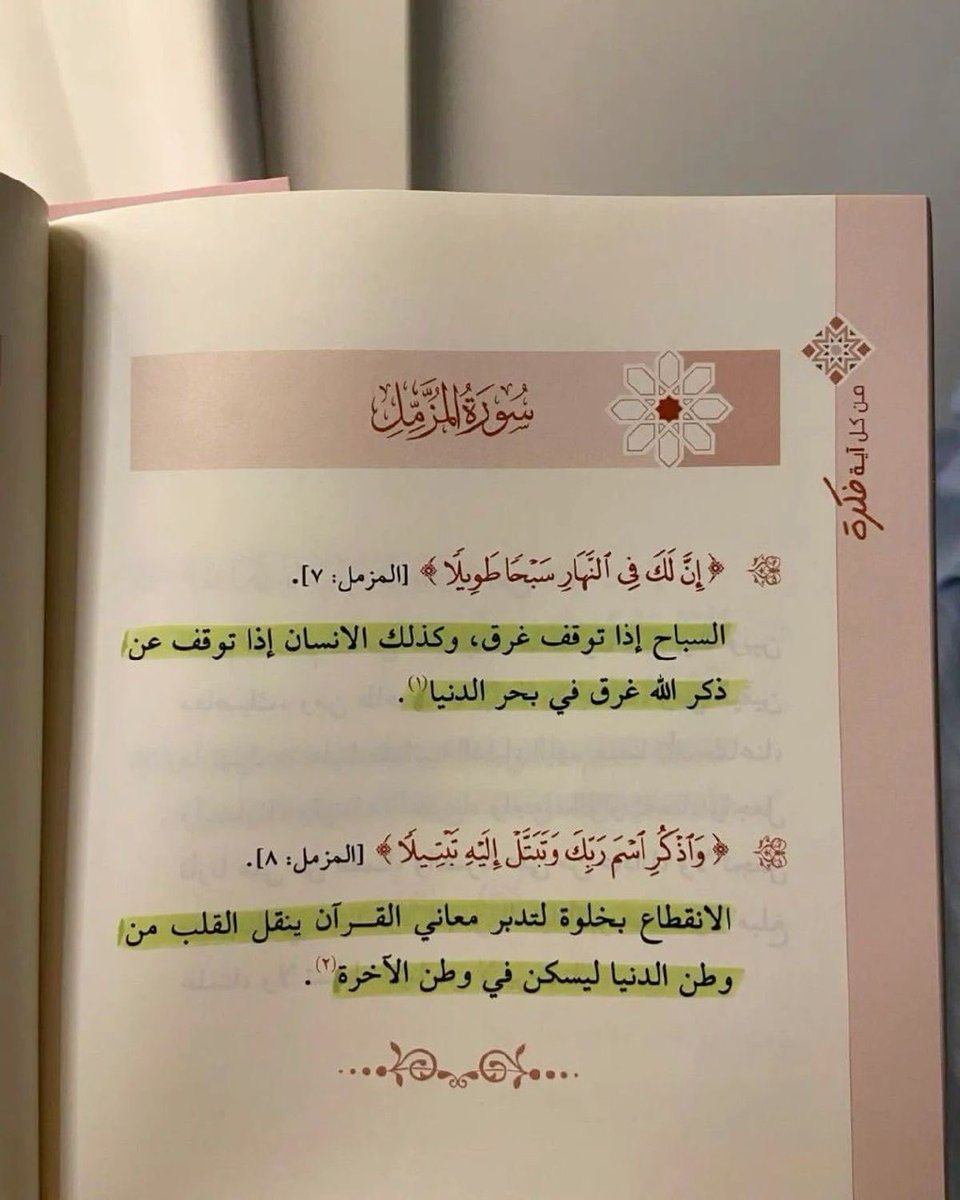 من كل آية فكرة
سُورَةُ المُزَّمِّلِ
﴿ إِنَّ لَكَ فِي ٱلنَّهَارِ سَبۡحٗا طَوِيلٗا ﴾ [المزمل: ٧].
السباح إذا توقف غرق، وكذلك الانسان إذا توقف عن
ذكر الله غرق في بحر الدنيا(١).
﴿ وَٱذۡكُرِ ٱسۡمَ رَبِّكَ وَتَبَتَّلۡ إِلَيۡهِ تَبۡتِيلٗا ﴾ [المزمل: ٨].
الانقطاع بخلوة لتدبر معاني القـرآن ينقل القلب من
وطن الدنيا ليسكن في وطن الآخرة(٢).